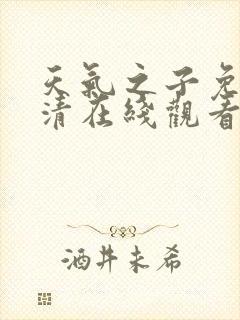 天氣之子免
清在綫觀看
酒井未希